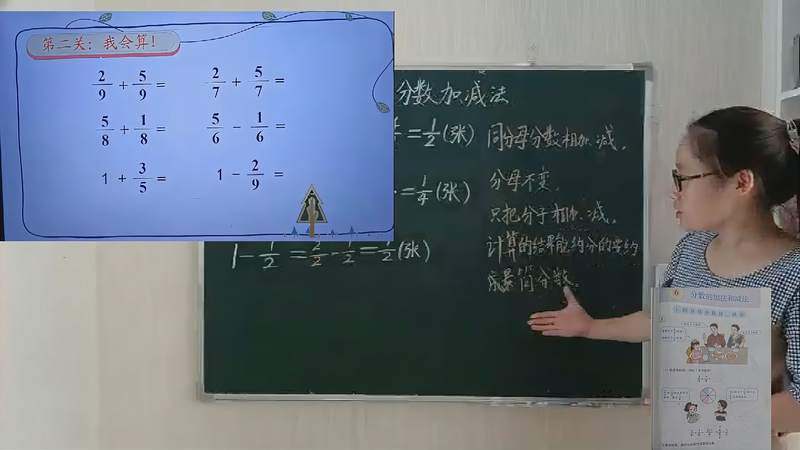 第二关：我会算！
2/9 + 5/9 = 2/7 + 5/7 =
5/8 + 1/8 = 5/6 - 1/6 =
1 + 3/5 = 1 - 2/9 =
分数加减法
= 1/2 (张)
= 1/4 (张)
1 - 1/2 = 2/2 - 1/2 = 1/2 (张)
同分母分数相加、减，
分母不变，
只把分子相加、减。
计算的结果能约分的要约
成最简分数。
6 分数的加法和减法